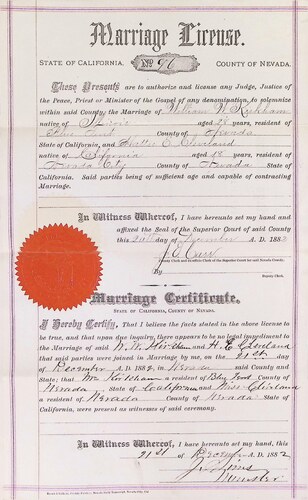 Marriage License.
STATE OF CALIFORNIA, No. 90 COUNTY OF NEVADA.
These Presents are to authorize and license any Judge, Justice of
the Peace, Priest or Minister of the Gospel of any denomination, to solemnize
within said County the Marriage of William W. Kirkham
native of aged resident of
County of Nevada
State of California, and Hattie E. Cleveland
native of California aged 18 years, resident of
Nevada City County of Nevada State of
California. Said parties being of sufficient age and capable of contracting
Marriage.
In Witness Whereof, I have hereunto set my hand and
affixed the Seal of the Superior Court of said County
this day of December A. D. 1882
By
Deputy Clerk.
Marriage Certificate.
STATE OF CALIFORNIA, COUNTY OF NEVADA.
I Hereby Certify, That I believe the facts stated in the above license to
be true, and that upon due inquiry, there appears to be no legal impediment
to the Marriage of said W. W. Kirkham and H. E. Cleveland
that said parties were joined in Marriage by me, on the 21st day
of December A. D. 1882, in Nevada said County and
State; that Wm Kirkham a resident of Blue Tent County of
Nevada, State of California and Miss Cleveland
a resident of Nevada County of Nevada State of
California, were present as witnesses of said ceremony.
In Witness Whereof, I have hereunto set my hand, this
21st day of December A. D. 1882
Minister